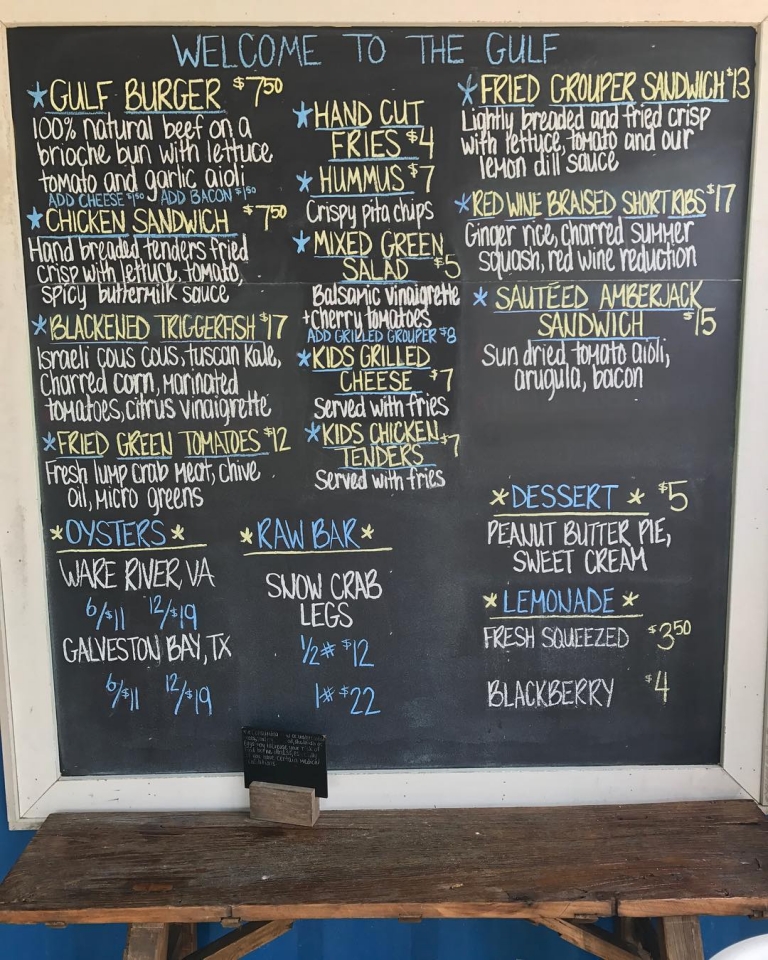 WELCOME TO THE GULF
*GULF BURGER $7.50
100% natural beef on a
brioche bun with lettuce
tomato and garlic aioli
ADD CHEESE $1.50 ADD BACON $1.50
*CHICKEN SANDWICH $7.50
Hand breaded tenders fried
crisp with lettuce, tomato,
spicy buttermilk sauce
*BLACKENED TRIGGERFISH $17
Israeli cous cous, tuscan kale,
charred corn, marinated
tomatoes, citrus vinaigrette
*FRIED GREEN TOMATOES $12
Fresh lump crab meat, chive
oil, micro greens
*HAND CUT
FRIES $4
*HUMMUS $7
Crispy pita chips
*MIXED GREEN
SALAD $5
Balsamic vinaigrette
+cherry tomatoes
ADD GRILLED GROUPER $8
*KIDS GRILLED
CHEESE $7
Served with fries
*KIDS CHICKEN $7
TENDERS
Served with fries
*FRIED GROUPER SANDWICH $13
Lightly breaded and fried crisp
with lettuce, tomato and our
lemon dill sauce
*RED WINE BRAISED SHORT RIBS $17
Ginger rice, charred summer
squash, red wine reduction
*SAUTÉED AMBERJACK
SANDWICH $15
Sun dried tomato aioli,
arugula, bacon
*OYSTERS*
WARE RIVER, VA
6/$11 12/$19
GALVESTON BAY, TX
6/$11 12/$19
*RAW BAR*
SNOW CRAB
LEGS
1/2# $12
1# $22
*DESSERT* $5
PEANUT BUTTER PIE,
SWEET CREAM
*LEMONADE*
FRESH SQUEEZED $3.50
BLACKBERRY $4